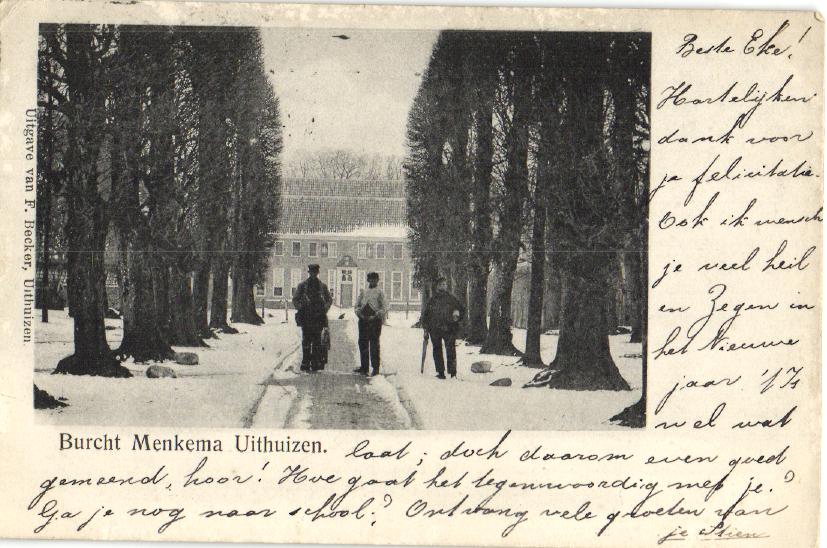 Uitgave van F. Becker, Uithuizen.
Beste Eke!
Hartelijken
dank voor
je felicitatie.
Ook ik wensch
je veel heil
en Zegen in
het Nieuwe
jaar. 't Is
wel wat
Burcht Menkema Uithuizen.
laat; doch daarom even goed
gemeend, hoor! Hoe gaat het tegenwoordig met je?
Ga je nog naar school? Ontvang vele groeten van
je Stien